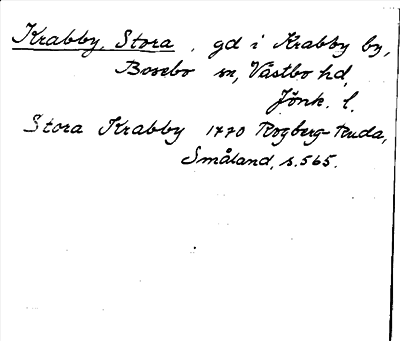 Krabby, Stora, gd i Krabby by,
Bosebo sn, Västbo hd,
Jönk. l.
Stora Krabby 1770 Rogberg-Ruda,
Småland, s. 565.